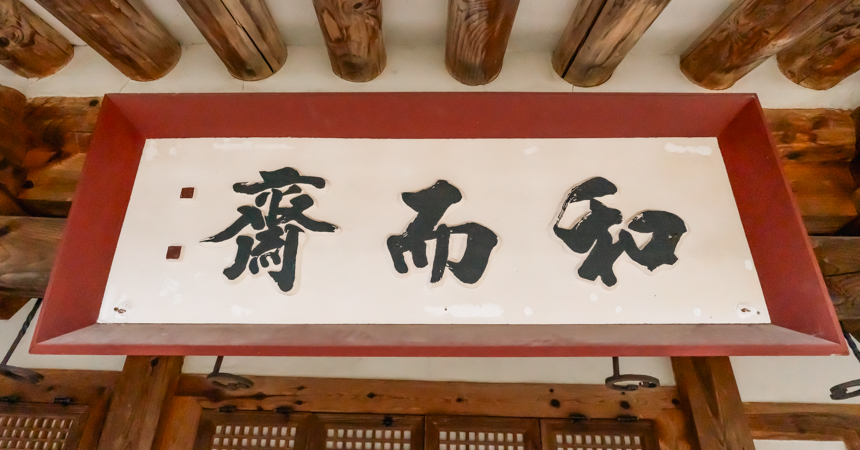 和而齋